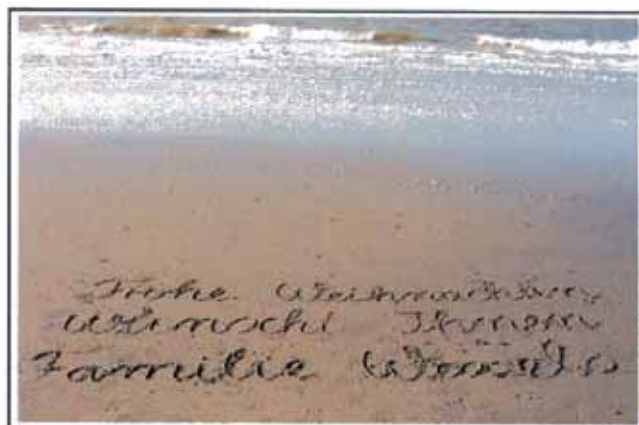 Frohe Weihnachten
wünscht Ihnen
Familie